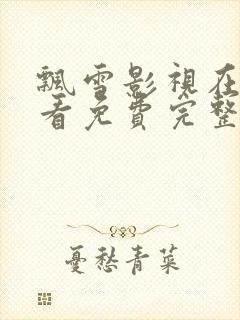 飄雪影視在
看免費完整
憂愁青菜